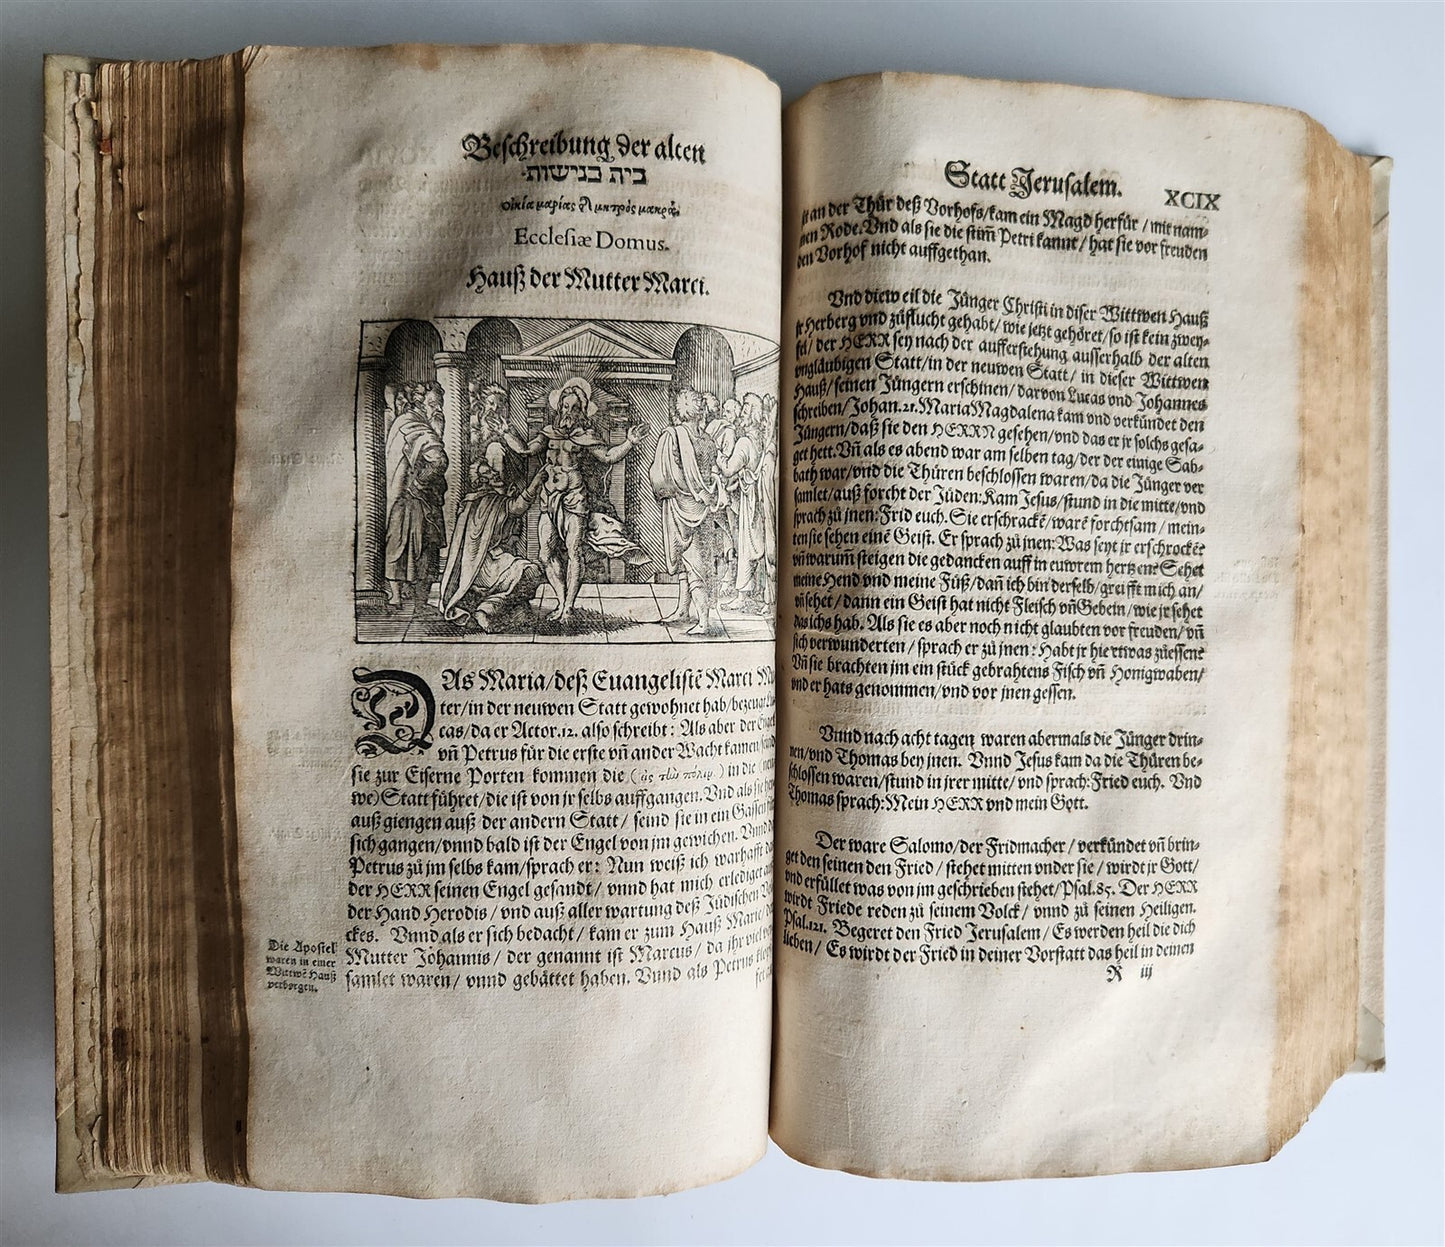 Beschreibung der alten
בית כנישות
οἰκία μαρίας μητρὸς
Ecclesiæ Domus.
Hauß der Mutter Marci.
DAs Maria/deß Euangelistē Marci
ter/in der neuwen Statt gewohnet hab/bezeugt
cas/da er Actor.12. also schreibt: Als aber der Engel
vñ Petrus für die erste vñ ander Wacht kamen/
sie zur Eiserne Porten kommen die ( ) in die
we) Statt führet/die ist von jr selbs auffgangen. Vnd als sie
auß giengen auß der andern Statt/ seind sie in ein Gassen
sich gangen/vnnd bald ist der Engel von jm gewichen. Vnnd
Petrus zů jm selbs kam/sprach er: Nun weiß ich warhafft
der HERR seinen Engel gesandt/ vnnd hat mich erlediget
der Hand Herodis/ vnd auß aller wartung deß Jüdischen
ckes. Vnnd als er sich bedacht/ kam er zum Hauß Marie/
Mutter Johannis/ der genannt ist Marcus/ da jhr viel
samlet waren/ vnnd gebättet haben. Vnnd als Petrus
Die Apostel
waren in einer
Wittwē Hauß
verborgen.
Statt Jerusalem. XCIX
an der Thür deß Vorhofs/kam ein Magd herfür/ mit nam-
men Rode. Vnd als sie die stim̃ Petri kannt/ hat sie vor freuden
den Vorhof nicht auffgethan.
Vnd dieweil die Jünger Christi in diser Wittwen Hauß
jr Herberg vnd zůflucht gehabt/ wie jetzt gehöret/so ist kein zwey-
fel/ der HERR sey nach der aufferstehung ausserhalb der alten
vngläubigen Statt/in der neuwen Statt/ in dieser Wittwen
Hauß/seinen Jüngern erschinen/darvon Lucas vnd Johannes
schreiben/Johan.21. Maria Magdalena kam vnd verkündet den
Jüngern/daß sie den HERRN gesehen/vnd das er jr solchs gesa-
get hett. Vñ als es abend war am selben tag/der der einige Sab-
bath war/vnd die Thüren beschlossen waren/da die Jünger ver
samlet/auß forcht der Jüden: Kam Jesus/stund in die mitte/vnd
sprach zů jnen: Frid euch. Sie erschrackē/warē forchtsam/ mein-
ten sie sehen einē Geist. Er sprach zů jnen: Was seyt jr erschrockē?
vñ warum̃ steigen die gedancken auff in euwrem hertzen? Sehet
meine Hend vnd meine Füß/dañ ich bin derselb/greifft mich an/
vñ sehet/ dann ein Geist hat nicht Fleisch vñ Gebein/wie jr sehet
das ichs hab. Als sie es aber noch nicht glaubten vor freuden/vñ
sich verwunderten/ sprach er zů jnen: Habt jr hie etwas zůessen?
Vñ sie brachten jm ein stück gebrahtens Fisch vñ Honigwaben/
vnd er hats genommen/vnd vor jnen gessen.
Vnnd nach acht tagen waren abermals die Jünger drin-
nen/vnd Thomas bey jnen. Vnnd Jesus kam da die Thüren be-
schlossen waren/stund in jrer mitte/ vnd sprach: Fried euch. Vnd
Thomas sprach: Mein HERR vnd mein Gott.
Der ware Salomo/der Fridmacher/ verkündet vñ brin-
get den seinen den Fried/ stehet mitten vnder sie/ wirdt jr Gott/
vnd erfüllet was von jm geschrieben stehet/Psal.85. Der HERR
wirdt Friede reden zů seinem Volck/ vnnd zů seinen Heiligen.
Psal.121. Begeret den Fried Jerusalem/ Es werden heil die dich
lieben/ Es wirdt der Fried in deiner Vorstatt das heil in deinen
R iij